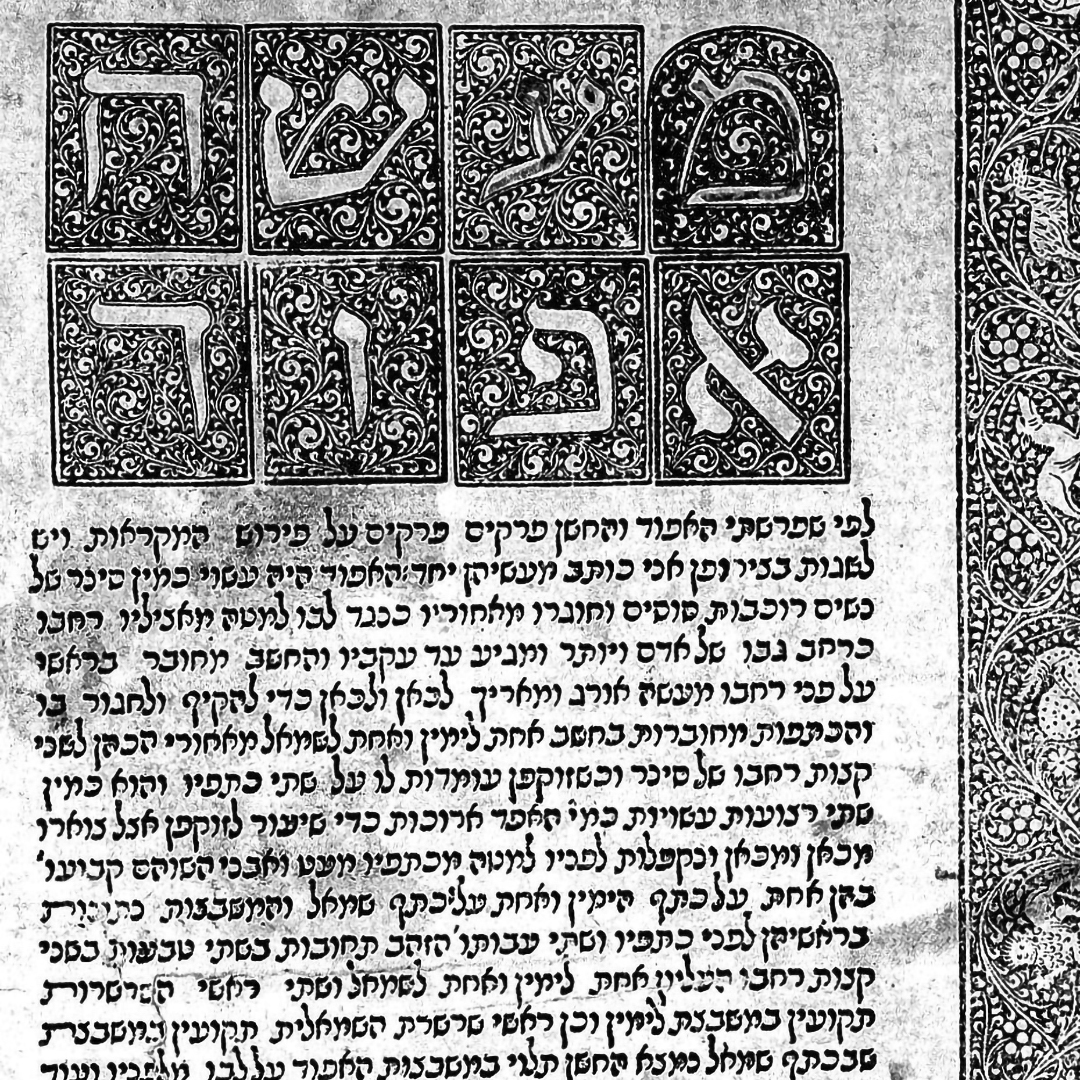 מעשה
אפוד
לפי שפרשתי האפוד והחשן פרקים פרקים על פירוש המקראות ויש
לשנות בצירופן אני כותב מעשיהן יחד האפוד היה עשוי כמין סינר של
נשים רוכבות סוסים וחוגרו מאחוריו כנגד לבו למטה מאציליו רחבו
כרחב גבו של אדם ויותר ומגיע עד עקביו והחשב מחובר בראשו
על פני רחבו מעשה אורג ומאריך לכאן ולכאן כדי להקיף ולחגור בו
והכתפות מחוברות בחשב אחת לימין ואחת לשמאל מאחורי הכהן לשני
קצות רחבו של סינר וכשזוקפן עומדות לו על שתי כתפיו והוא כמין
שתי רצועות עשויות כמי האפד ארוכות כדי שיעור לזוקפן אצל צוארו
מכאן ומכאן ונקפלות לפניו למטה מכתפיו מעט ואבני השוהם קבועו'
בהן אחת על כתף הימין ואחת על כתף שמאל והמשבצות נתונות
בראשיהן לפני כתפיו ושתי עבותו' הזהב תחובות בשתי טבעות בשני
קצות רחבו העליון אחת לימין ואחת לשמאל ושתי ראשי השרשרות
תקועין במשבצת לימין וכן ראשי שרשרת השמאלית תקועין במשבצת
שבכתף שמאל נמצא החשן תלוי במשבצות האפוד על לבו מלפניו ועוד